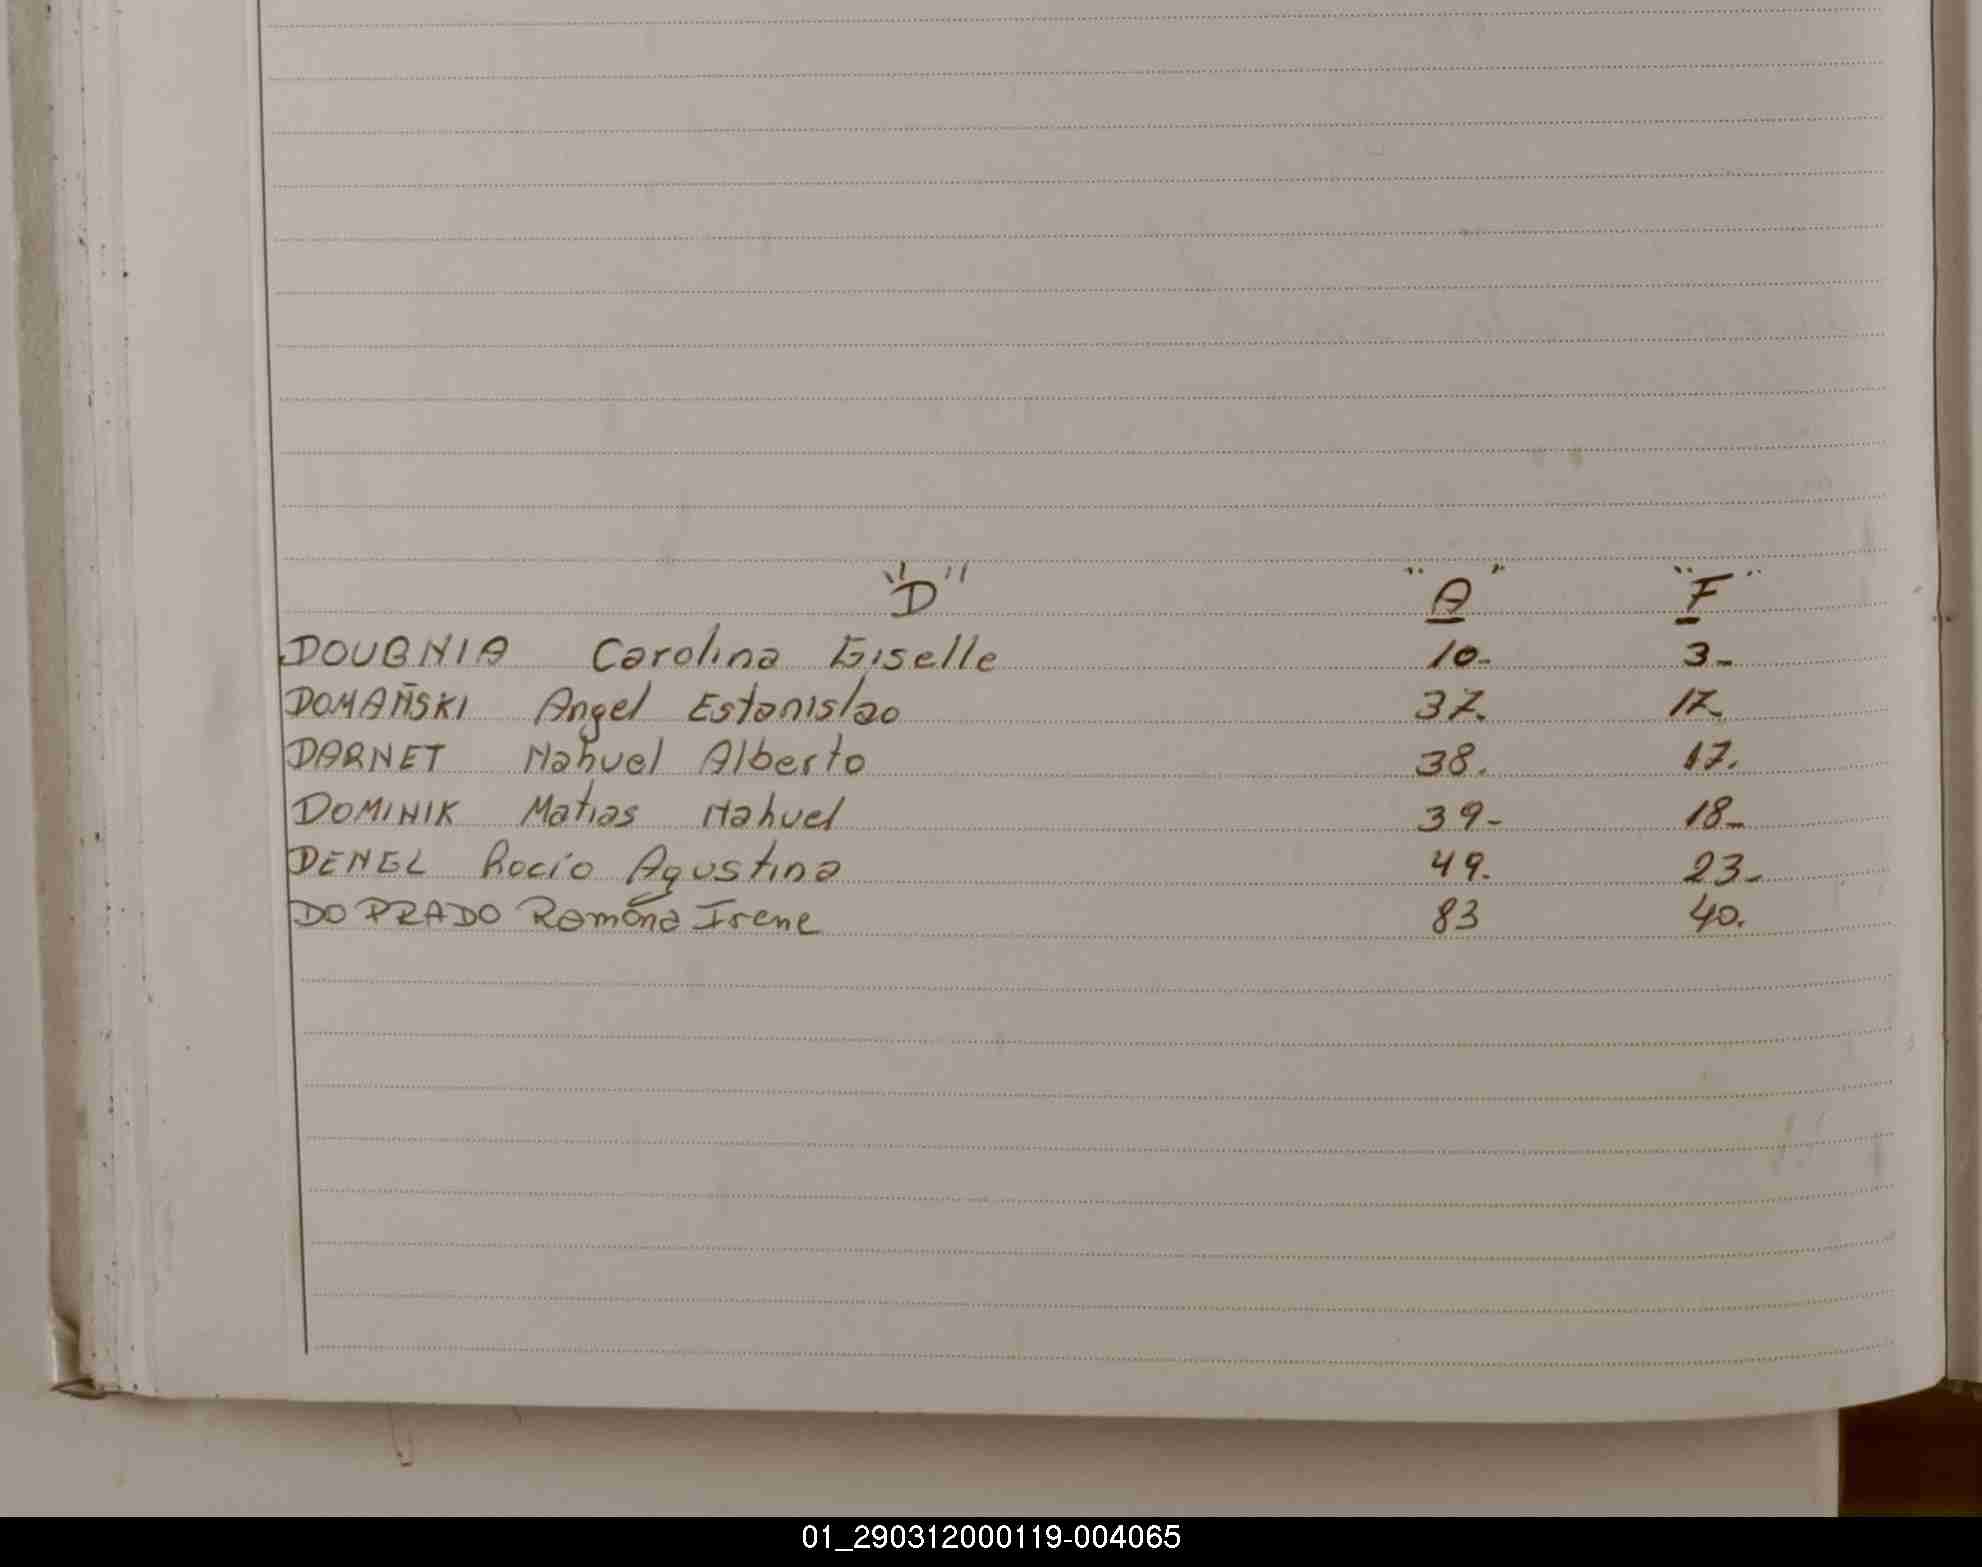 "D" "A" "F"
DOUBNIA Carolina Giselle 10- 3-
DOMAÑSKI Angel Estanislao 37. 17.
DARNET Nahuel Alberto 38. 17.
DOMINIK Matias Nahuel 39- 18-
DENGL Rocío Agustina 49. 23-
DO PRADO Ramona Irene 83 40.
01_290312000119-004065